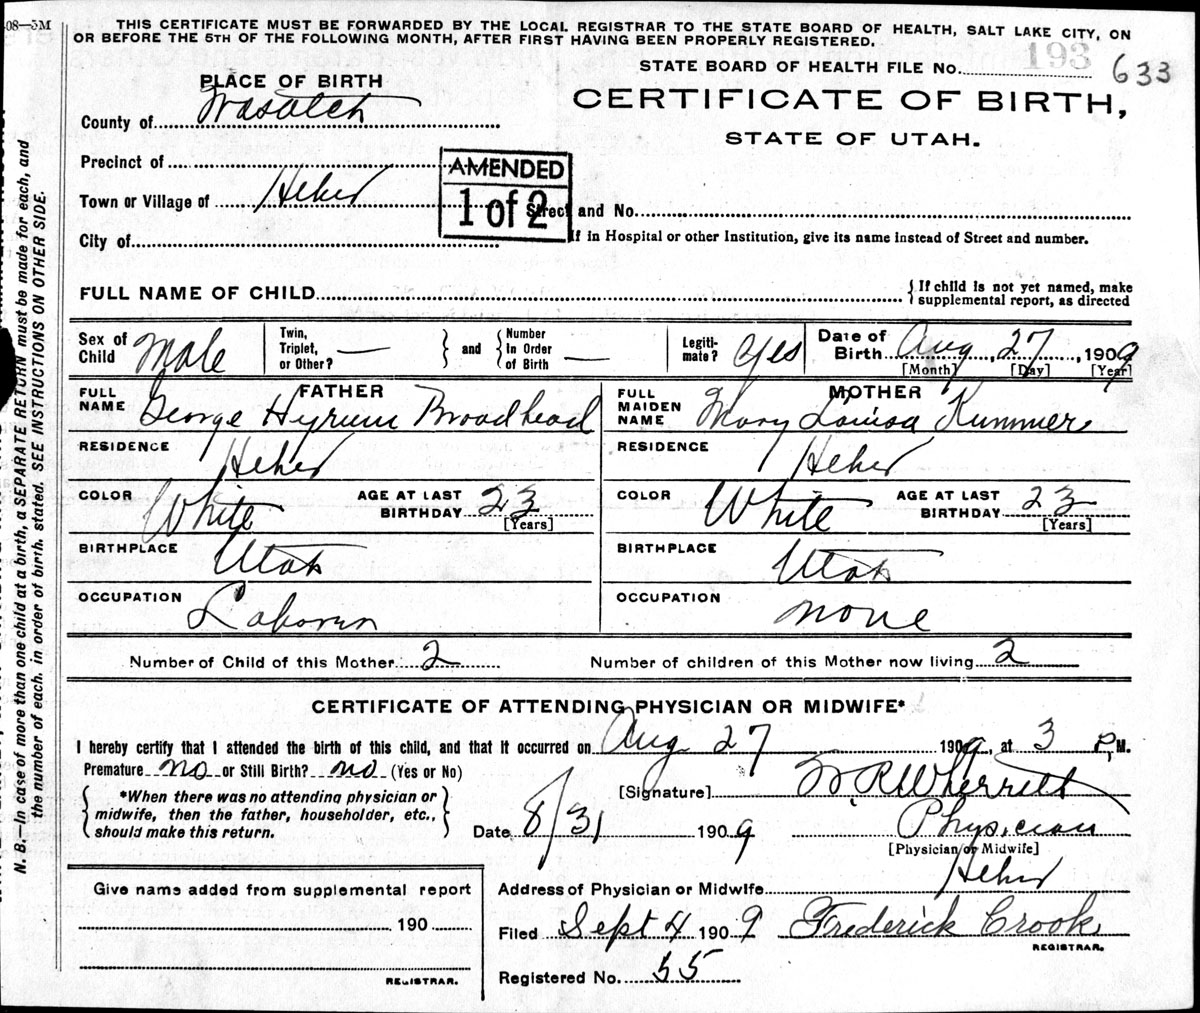 408—5M
THIS CERTIFICATE MUST BE FORWARDED BY THE LOCAL REGISTRAR TO THE STATE BOARD OF HEALTH, SALT LAKE CITY, ON
OR BEFORE THE 5TH OF THE FOLLOWING MONTH, AFTER FIRST HAVING BEEN PROPERLY REGISTERED.
193
STATE BOARD OF HEALTH FILE No. 633
PLACE OF BIRTH
CERTIFICATE OF BIRTH,
STATE OF UTAH.
County of Wasatch
Precinct of
AMENDED
1 of 2
Town or Village of Heber
Street and No.
City of
If in Hospital or other Institution, give its name instead of Street and number.
FULL NAME OF CHILD
{ If child is not yet named, make
supplemental report, as directed
Sex of Child Male
Twin, Triplet, or Other? —
} and { Number In Order of Birth —
Legiti-mate? Yes
Date of Birth Aug, 27, 1909
[Month] [Day] [Year]
FATHER
FULL NAME George Hyrum Broadhead
MOTHER
FULL MAIDEN NAME Mary Louisa Kummer
RESIDENCE Heber
RESIDENCE Heber
COLOR White AGE AT LAST BIRTHDAY 23 [Years]
COLOR White AGE AT LAST BIRTHDAY 23 [Years]
BIRTHPLACE Utah
BIRTHPLACE Utah
OCCUPATION Laborer
OCCUPATION none
Number of Child of this Mother 2 Number of children of this Mother now living 2
CERTIFICATE OF ATTENDING PHYSICIAN OR MIDWIFE*
I hereby certify that I attended the birth of this child, and that it occurred on Aug 27 1909, at 3 P.M.
Premature no or Still Birth? no (Yes or No)
[Signature] W. R. Wherritt
{ *When there was no attending physician or
midwife, then the father, householder, etc.,
should make this return. }
Date 8/31 1909 Physician
[Physician or Midwife]
Give name added from supplemental report
190
REGISTRAR.
Address of Physician or Midwife Heber
Filed Sept 4 1909 Frederick Crook
REGISTRAR.
Registered No. 55
N. B.—In case of more than one child at a birth, a SEPARATE RETURN must be made for each, and
the number of each, in order of birth, stated. SEE INSTRUCTIONS ON OTHER SIDE.